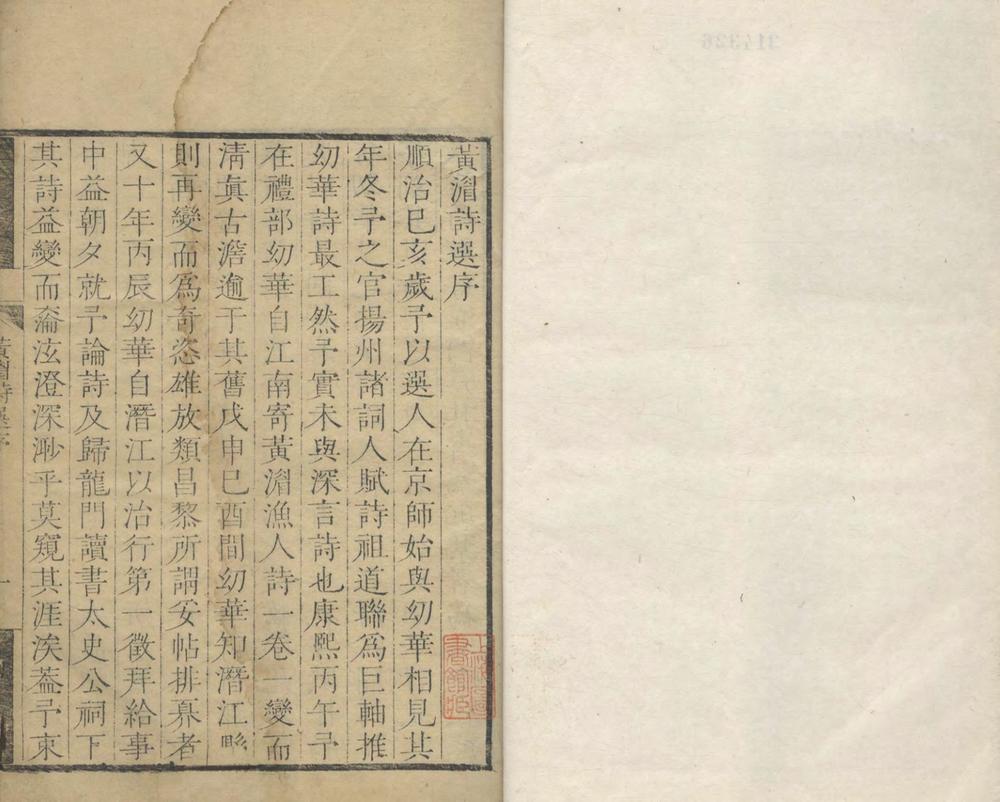 黃湄詩選序
順治己亥歲予以選人在京師始與幼華相見其
年冬予之官揚州諸詞人賦詩祖道聯爲巨軸推
幼華詩最工然予實未與深言詩也康熙丙午予
在禮部幼華自江南寄黃湄漁人詩一卷一變而
淸眞古澹逾于其舊戊申己酉間幼華知潛江縣
則再變而爲奇恣雄放類昌黎所謂妥帖排奡者
又十年丙辰幼華自潛江以治行第一徵拜給事
中益朝夕就予論詩及歸龍門讀書太史公祠下
其詩益變而奫泫澄深渺乎莫窺其涯涘葢予束
黃湄詩選序
一
上海圖書館印
314326